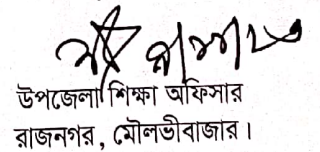 উপজেলা শিক্ষা অফিসার
রাজনগর, মৌলভীবাজার।